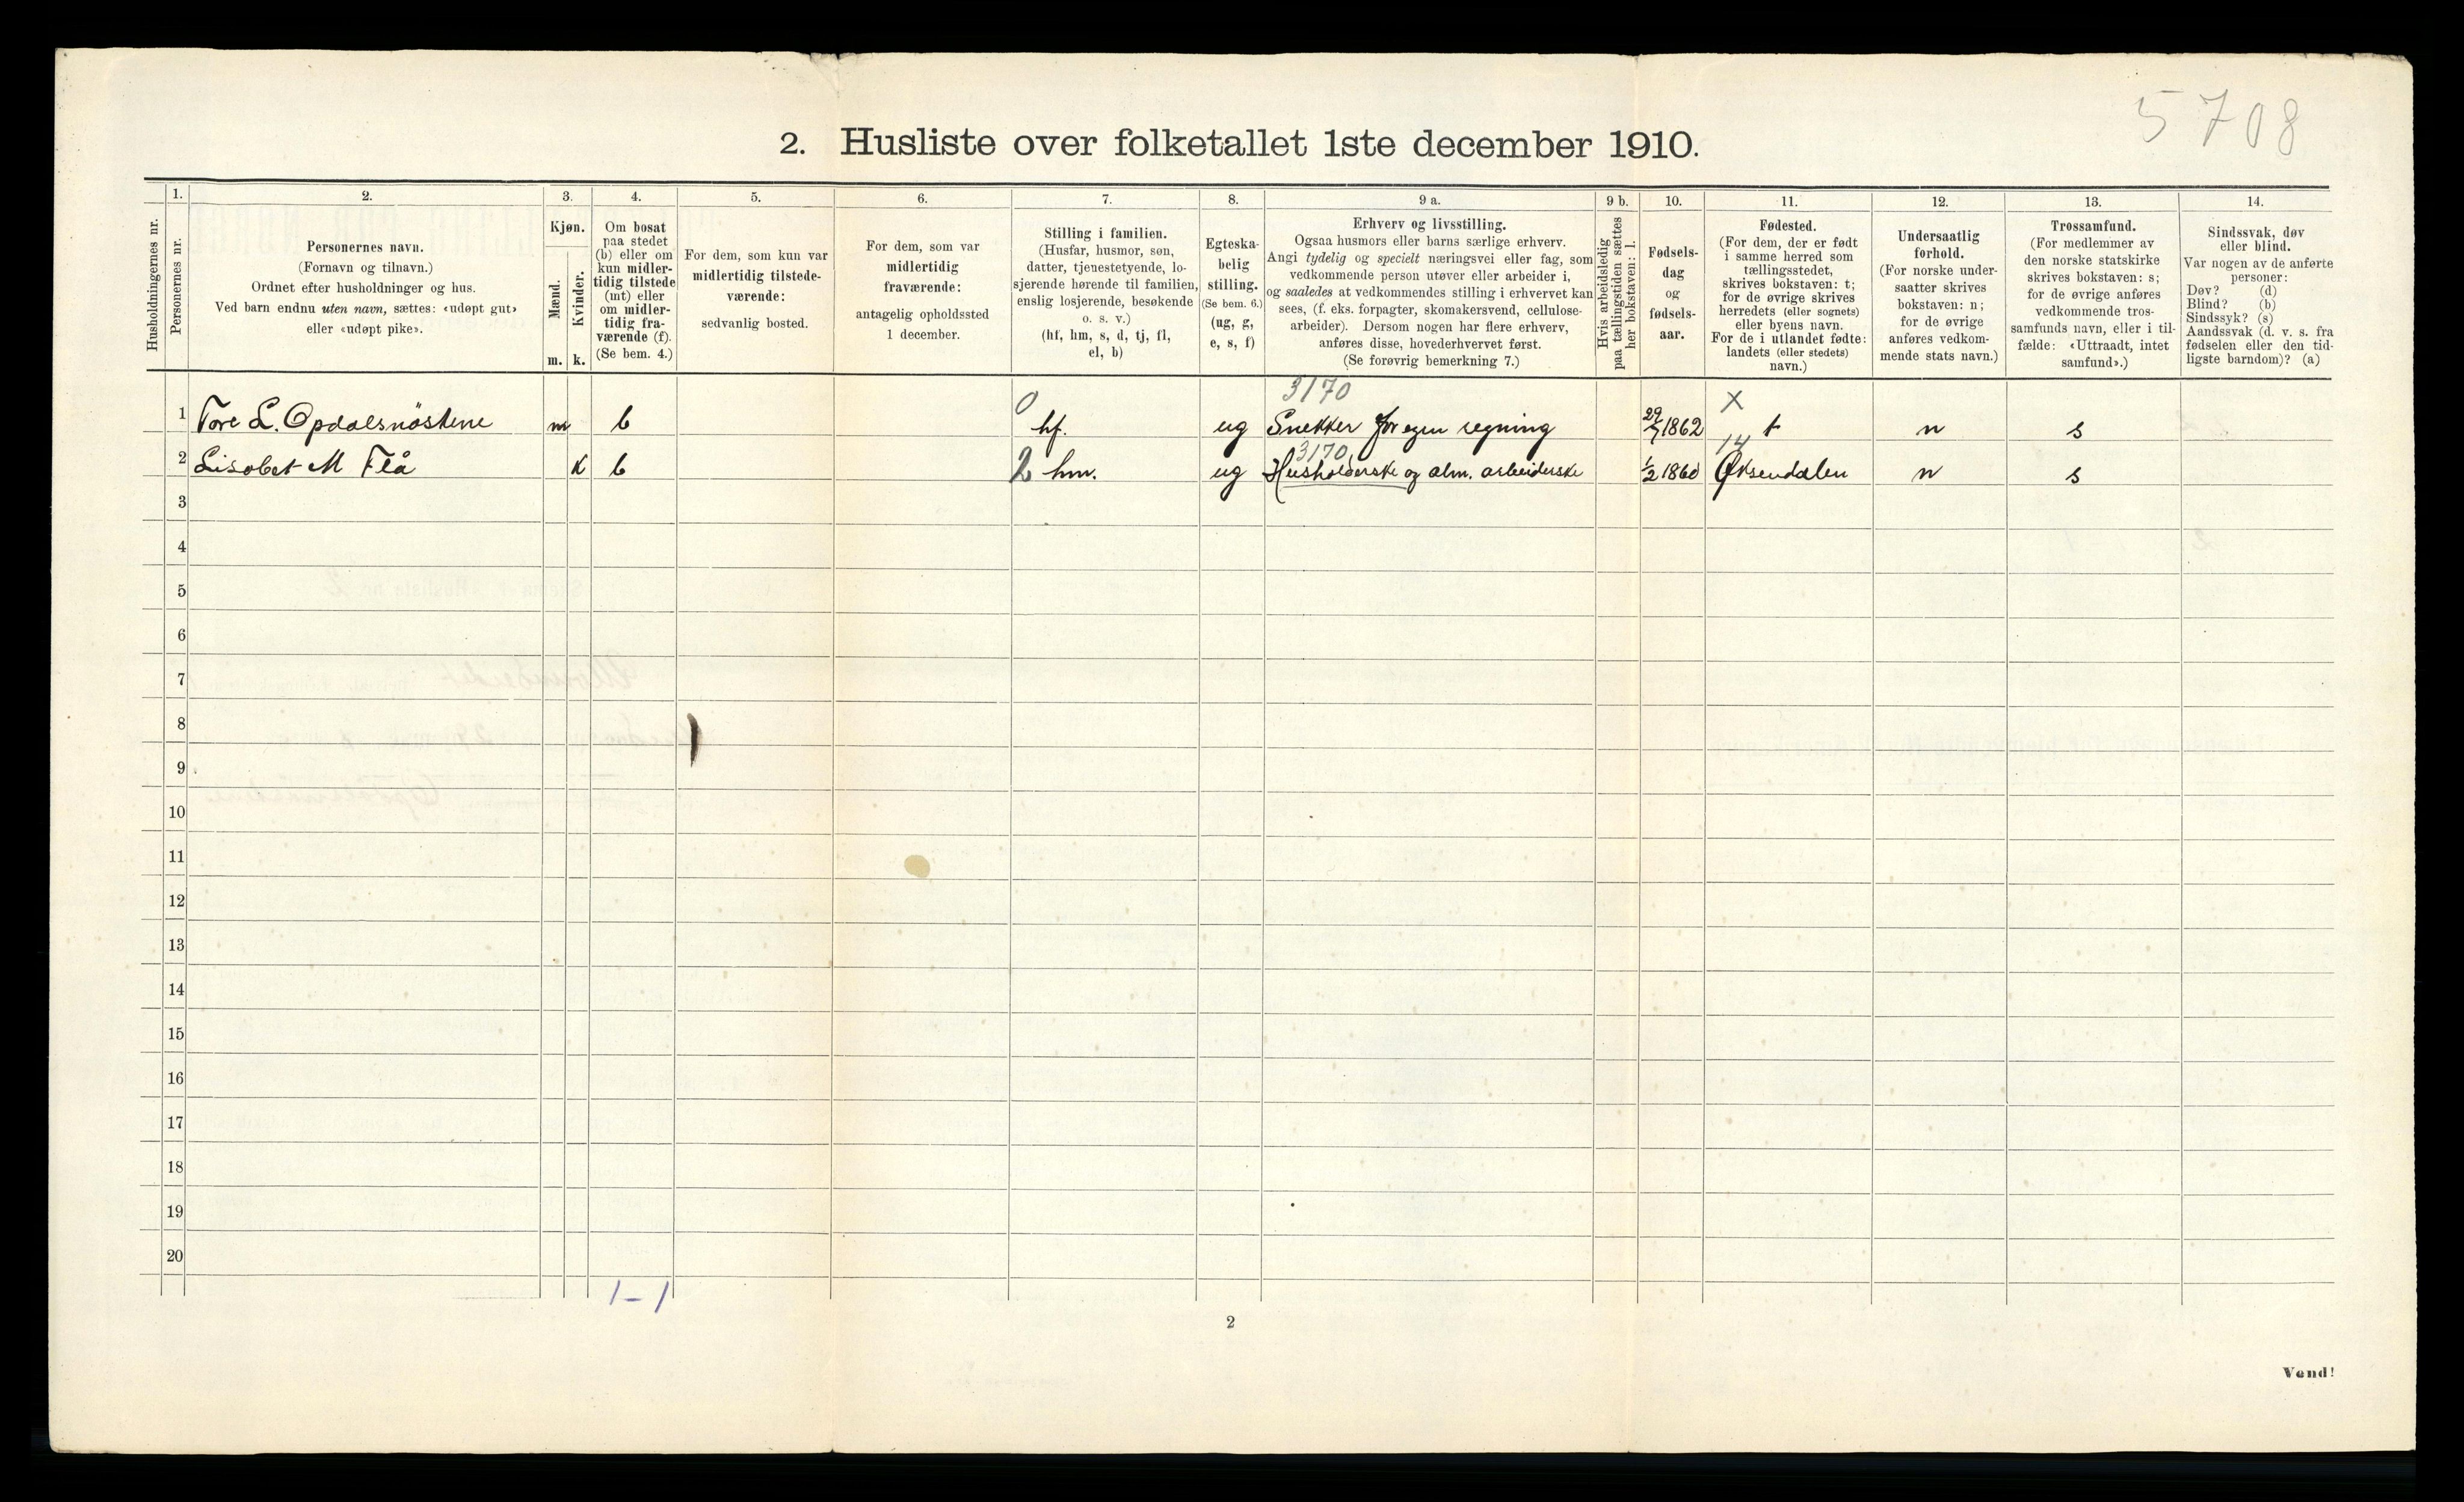 5708
2. Husliste over folketallet 1ste december 1910.
Husholdningernes nr.
1.
Personernes nr.
2.
Personernes navn.
(Fornavn og tilnavn.)
Ordnet efter husholdninger og hus.
Ved barn endnu uten navn, sættes: «udøpt gut»
eller «udøpt pike».
3.
Kjøn.
Mænd.
m.
Kvinder.
k.
4.
Om bosat
paa stedet
(b) eller om
kun midler-
tidig tilstede
(mt) eller
om midler-
tidig fra-
værende (f).
(Se bem. 4.)
5.
For dem, som kun var
midlertidig tilstede-
værende:
sedvanlig bosted.
6.
For dem, som var
midlertidig
fraværende:
antagelig opholdssted
1 december.
7.
Stilling i familien.
(Husfar, husmor, søn,
datter, tjenestetyende, lo-
sjerende hørende til familien,
enslig losjerende, besøkende
o. s. v.)
(hf, hm, s, d, tj, fl,
el, b)
8.
Egteska-
belig
stilling.
(Se bem. 6.)
(ug, g,
e, s, f)
9 a.
Erhverv og livsstilling.
Ogsaa husmors eller barns særlige erhverv.
Angi tydelig og specielt næringsvei eller fag, som
vedkommende person utøver eller arbeider i,
og saaledes at vedkommendes stilling i erhvervet kan
sees, (f. eks. forpagter, skomakersvend, cellulose-
arbeider). Dersom nogen har flere erhverv,
anføres disse, hovederhvervet først.
(Se forøvrig bemerkning 7.)
9 b.
Hvis arbeidsledig
paa tællingstiden sættes
her bokstaven: l.
10.
Fødsels-
dag
og
fødsels-
aar.
11.
Fødested.
(For dem, der er født
i samme herred som
tællingsstedet,
skrives bokstaven: t;
for de øvrige skrives
herredets (eller sognets)
eller byens navn.
For de i utlandet fødte:
landets (eller stedets)
navn.)
12.
Undersaatlig
forhold.
(For norske under-
saatter skrives
bokstaven: n;
for de øvrige
anføres vedkom-
mende stats navn.)
13.
Trossamfund.
(For medlemmer av
den norske statskirke
skrives bokstaven: s;
for de øvrige anføres
vedkommende tros-
samfunds navn, eller i til-
fælde: «Uttraadt, intet
samfund».)
14.
Sindssvak, døv
eller blind.
Var nogen av de anførte
personer:
Døv? (d)
Blind? (b)
Sindssyk? (s)
Aandssvak (d. v. s. fra
fødselen eller den tid-
ligste barndom)? (a)
0 3170 X
1 Tore L. Opdalsnöstene m b hf. ug Snekker for egen regning 29/7 1862 t n s
3170 14
2 Lisabet M Flå k b 2 hm. ug Husholderske og alm. arbeiderske 1/2 1860 Øksendalen n s
3
4
5
6
7
8
9
10
11
12
13
14
15
16
17
18
19
20
1 – 1
2
Vend!